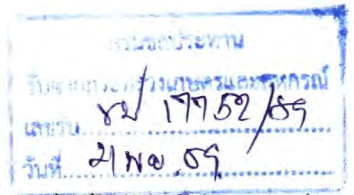 กรมชลประทาน
รับจากกระทรวงเกษตรและสหกรณ์
เลขรับ ชป 17752/59
วันที่ 21 พย. 59